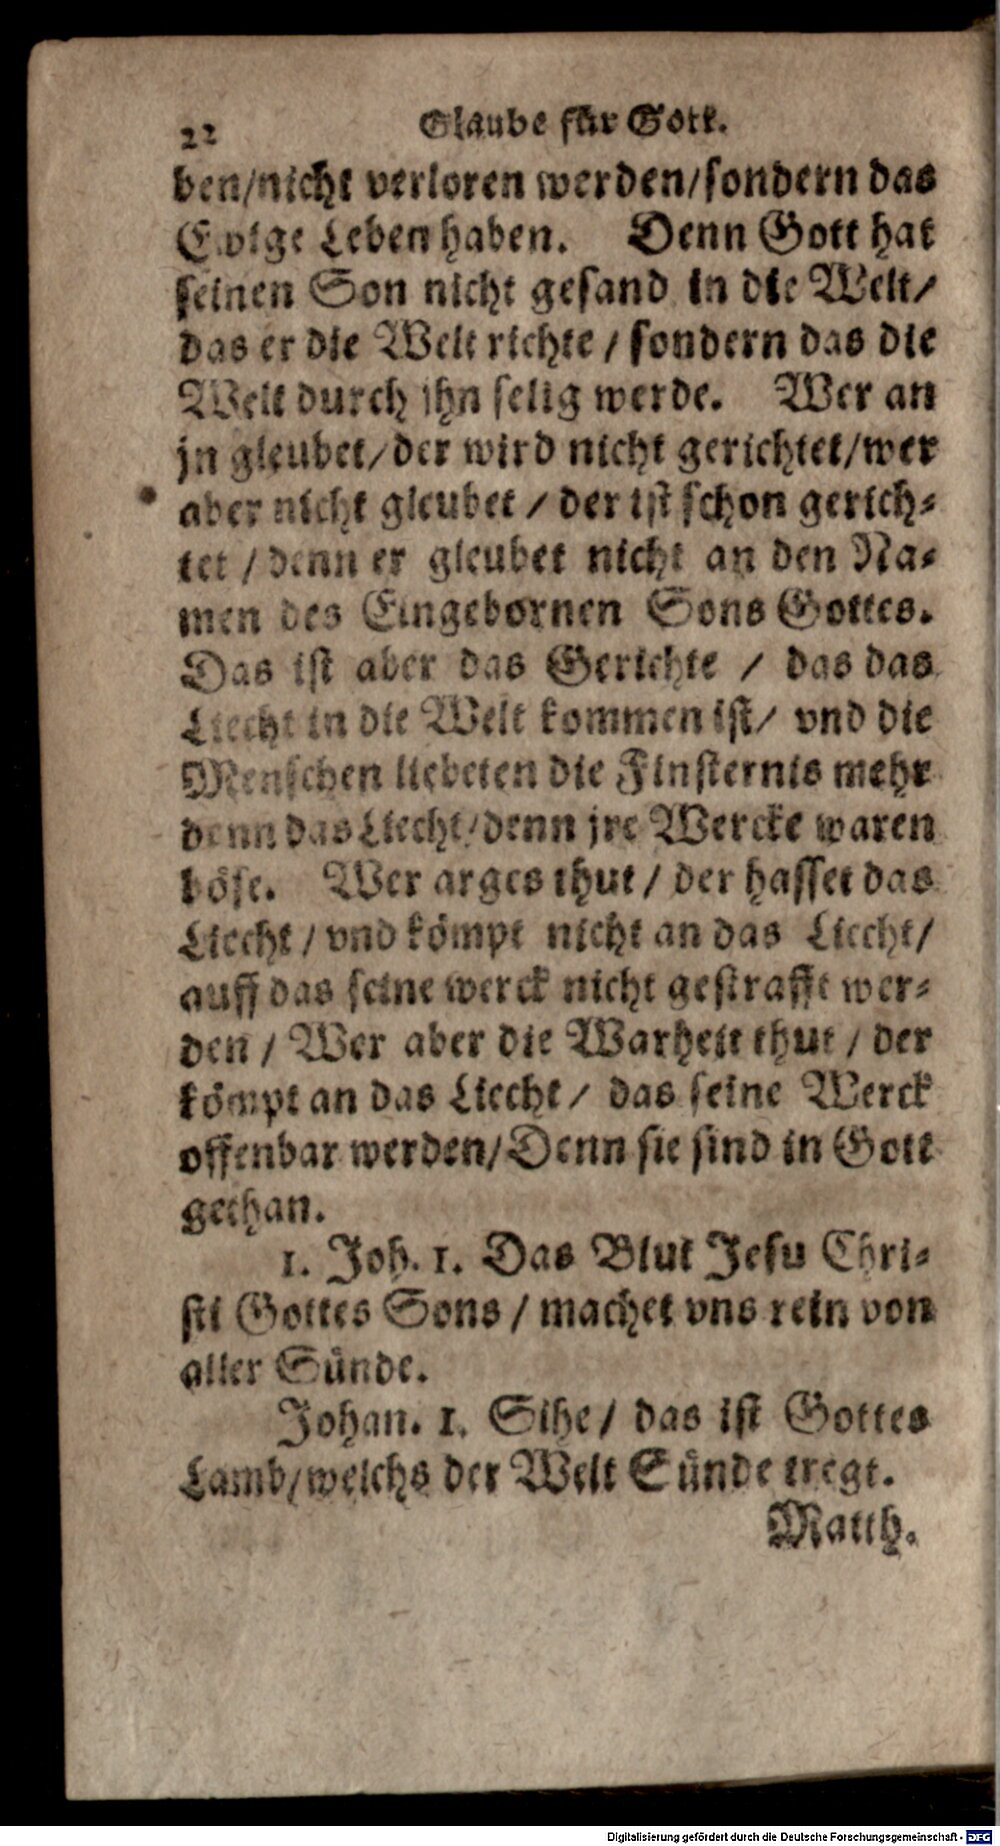 22 Glaube für Gott.
ben/nicht verloren werden/sondern das
Ewige Leben haben. Denn Gott hat
seinen Son nicht gesand in die Welt/
das er die Welt richte / sondern das die
Welt durch ihn selig werde. Wer an
jn gleubet/der wird nicht gerichtet/wer
aber nicht gleubet / der ist schon gerich-
tet / denn er gleubet nicht an den Na-
men des Eingebornen Sons Gottes.
Das ist aber das Gerichte / das das
Liecht in die Welt kommen ist/ vnd die
Menschen liebeten die Finsternis mehr
denn das Liecht/denn jre Wercke waren
böse. Wer arges thut / der hasset das
Liecht / vnd kömpt nicht an das Liecht/
auff das seine werck nicht gestrafft wer-
den / Wer aber die Warheit thut / der
kömpt an das Liecht / das seine Werck
offenbar werden/Denn sie sind in Gott
gethan.
1. Joh. 1. Das Blut Jesu Chri-
sti Gottes Sons / machet vns rein von
aller Sünde.
Johan. 1. Sihe / das ist Gottes
Lamb/welchs der Welt Sünde tregt.
Matth.
Digitalisierung gefördert durch die Deutsche Forschungsgemeinschaft - DFG